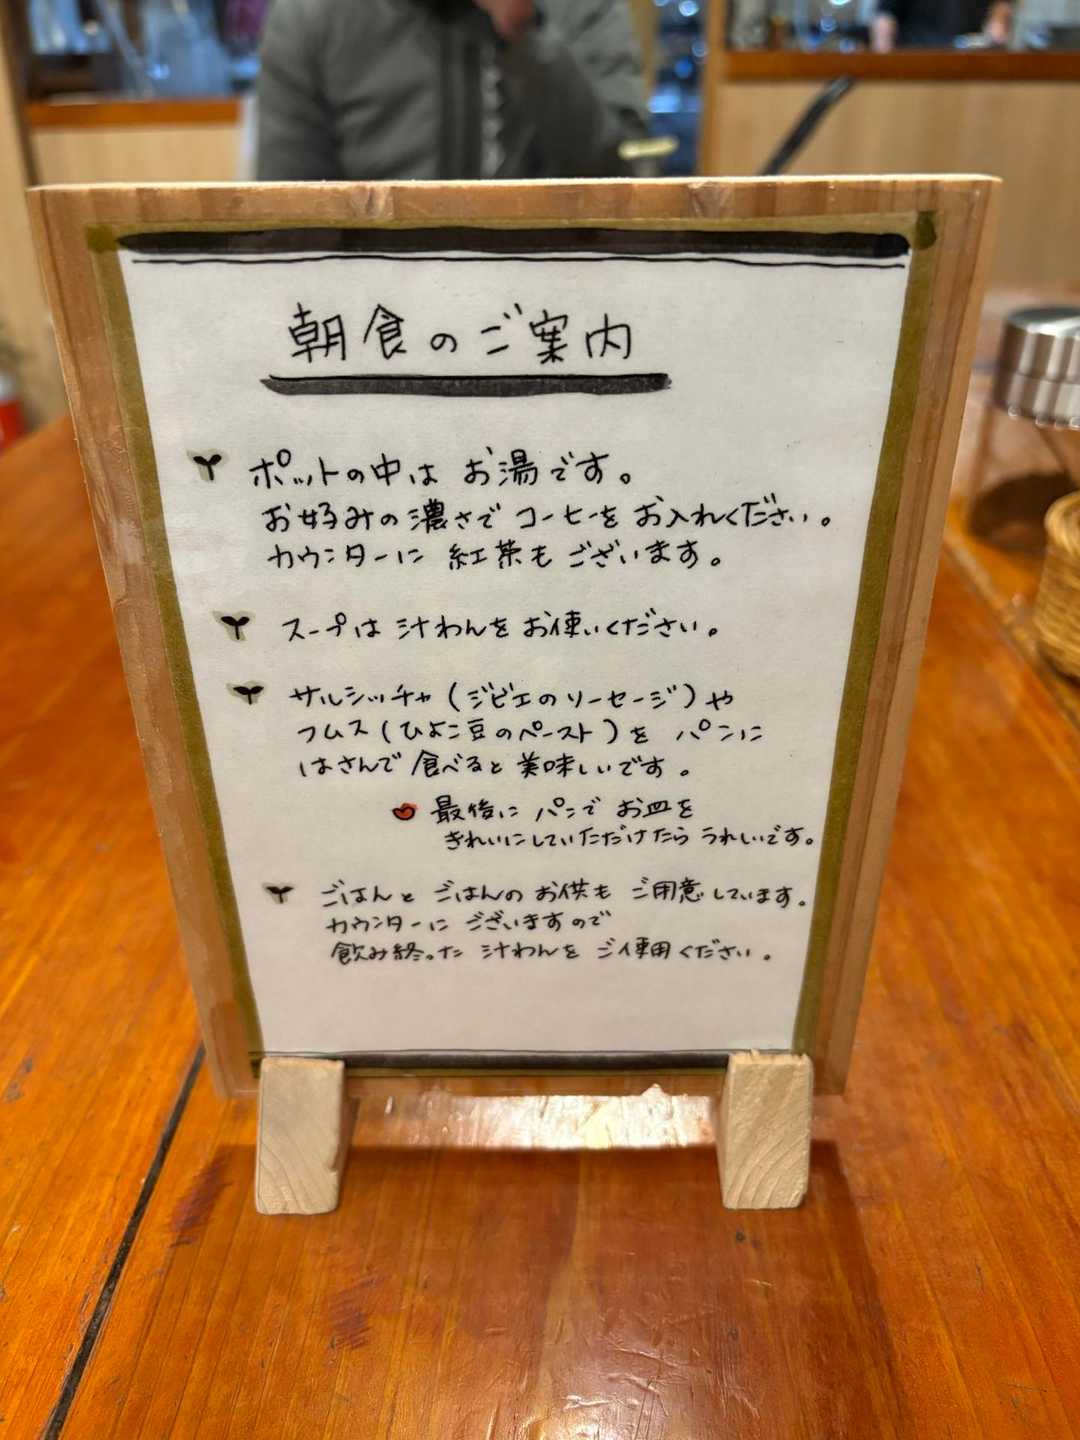 朝食のご案内
ポットの中は お湯です。
お好みの濃さで コーヒーを お入れください。
カウンターに 紅茶も ございます。
スープは 汁わんを お使いください。
サルシッチャ(ジビエのソーセージ)や
フムス(ひよこ豆のペースト)を パンに
はさんで 食べると 美味しいです。
最後に パンで お皿を
きれいにしていただけたら うれしいです。
ごはんと ごはんの お供も ご用意しています。
カウンターに ございますので
飲み終った 汁わんを ご使用ください。